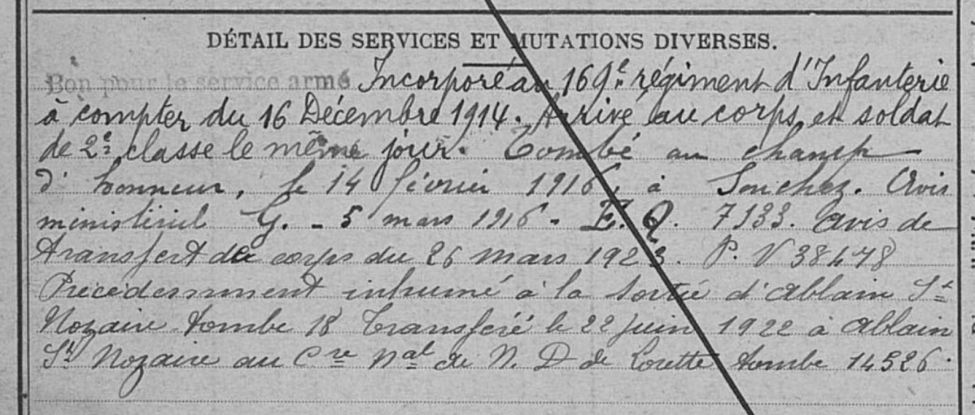 DÉTAIL DES SERVICES ET MUTATIONS DIVERSES.
Bon pour le service armé Incorporé au 169e régiment d'Infanterie
à compter du 16 Décembre 1914. Arrivé au corps et soldat
de 2e classe le même jour. Tombé au champ
d'honneur, le 14 février 1916, à Souchez. Avis
ministériel G. - 5 mars 1916 - 7133. Avis de
transfert de corps du 26 mars 1923. P. V 38478
Précédemment inhumé à la sortie d'Ablain St
Nazaire tombe 18 Transféré le 22 juin 1922 à Ablain
St Nazaire au Cre Nal de N. D de Lorette tombe 14526.